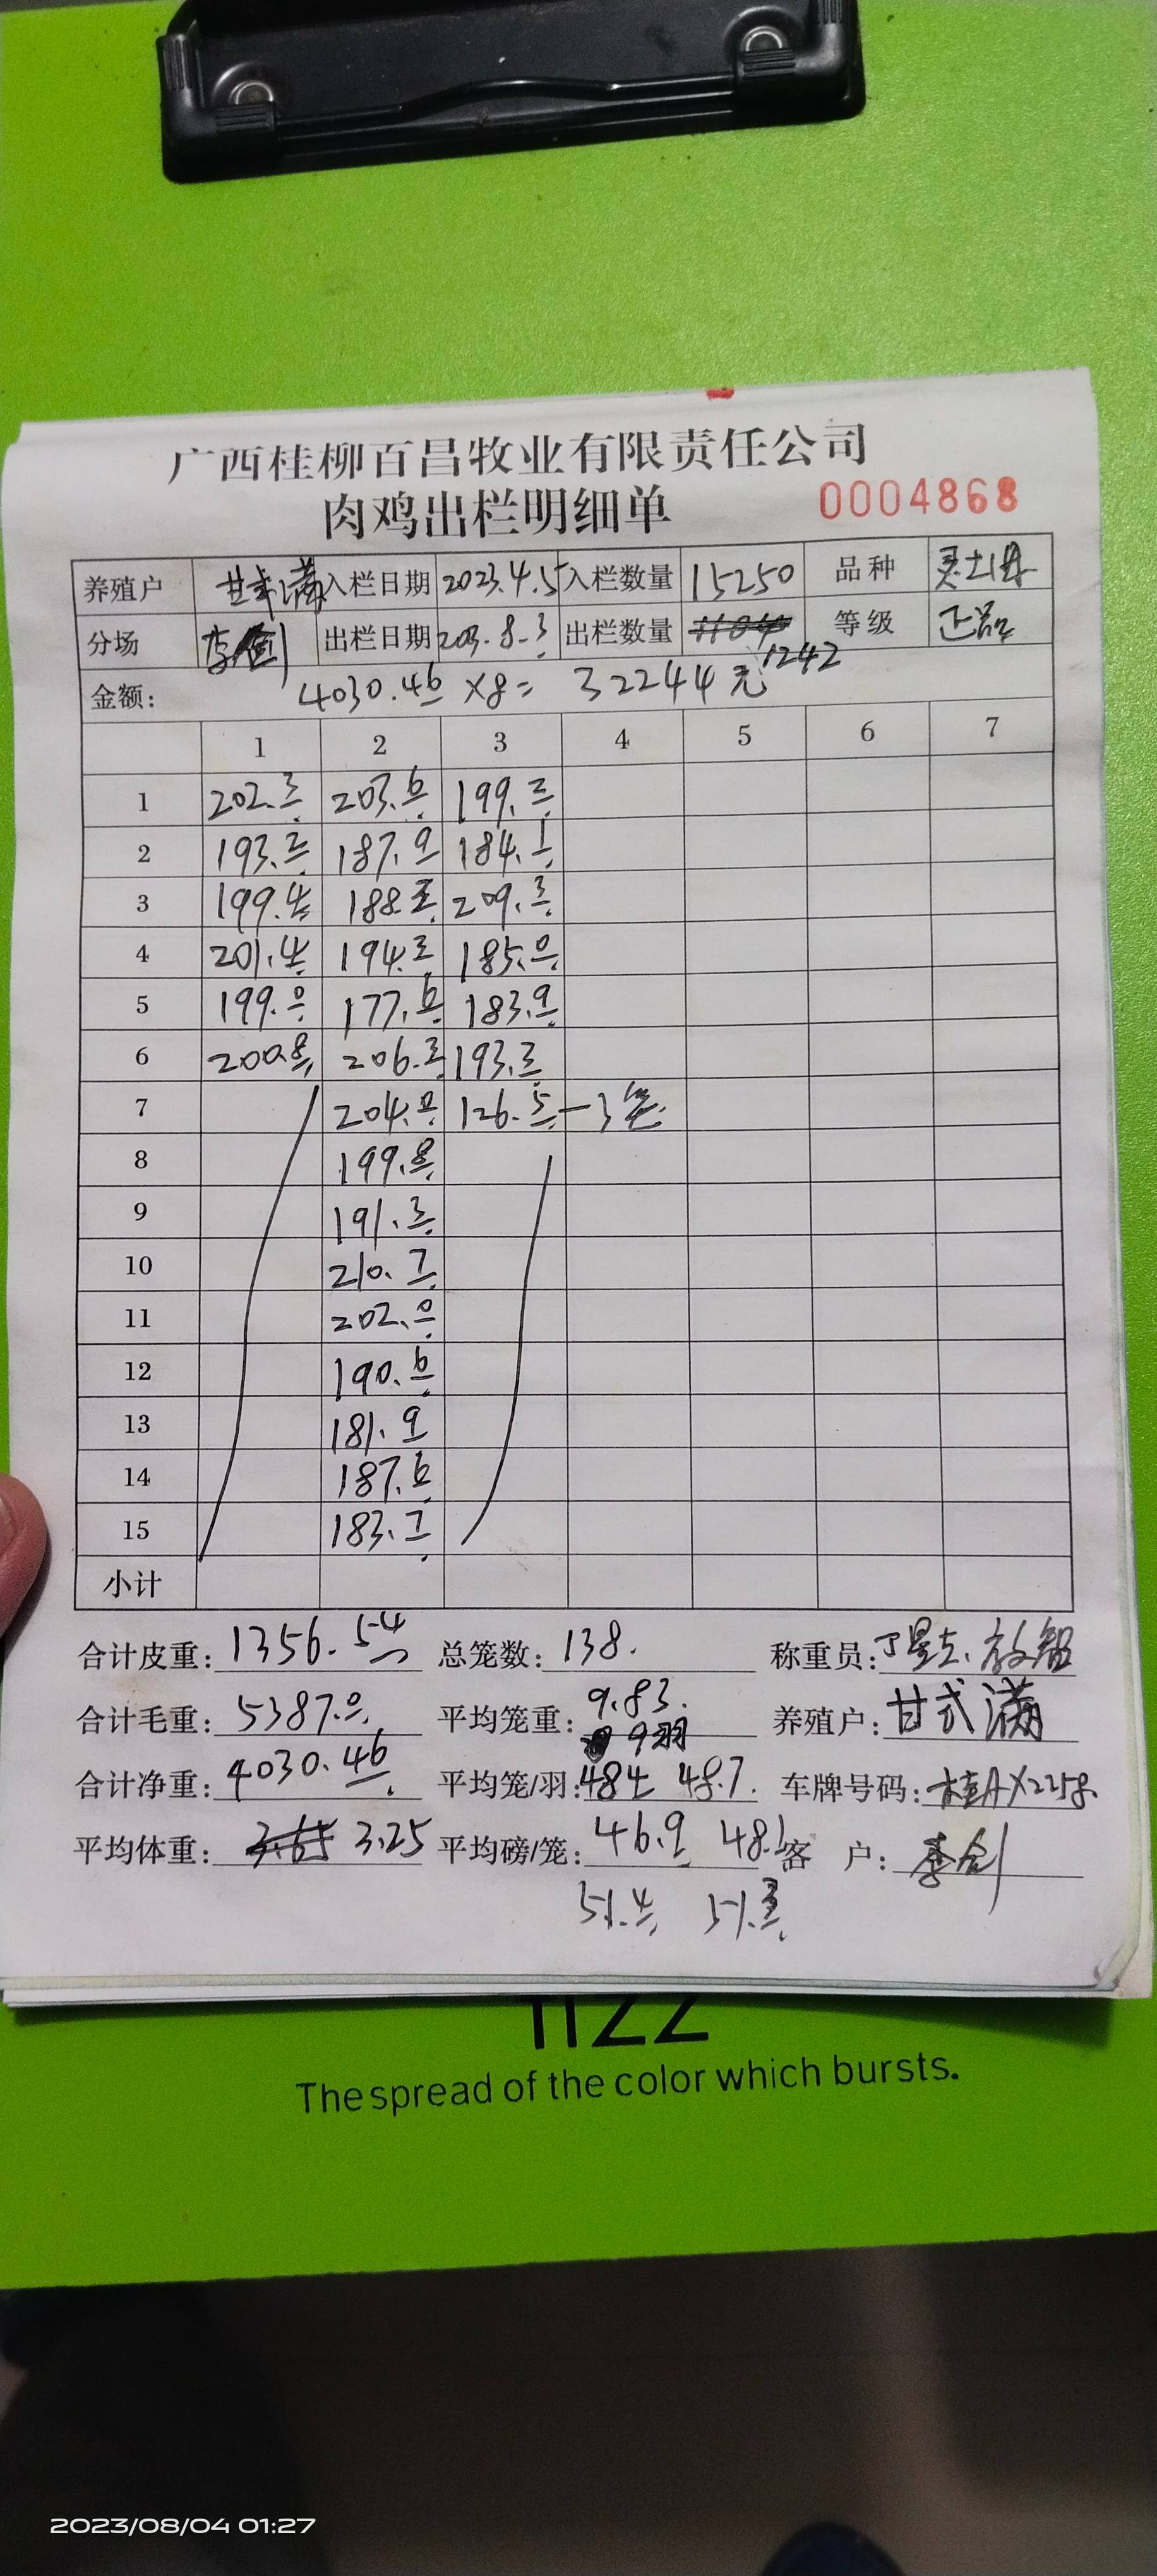 广西桂柳百昌牧业有限责任公司
肉鸡出栏明细单 0004868
养殖户 甘式满 入栏日期 2023.4.5 入栏数量 15250 品种 灵土母
分场 李剑 出栏日期 203.8.3 出栏数量 1242 等级 正品
金额: 4030.46×8= 32244元
1 2 3 4 5 6 7
1 202.3 203.6 199.3
2 193.3 187.9 184.1
3 199.4 188 209.3
4 201.4 194.3 185.0
5 199.0 177.6 183.9
6 200.8 206.3 193.3
7 204.0 126.5 -3笼
8 199.8
9 191.3
10 210.7
11 202.0
12 190.6
13 181.9
14 187.6
15 183.7
小计
合计皮重: 1356.54 总笼数: 138. 称重员:
合计毛重: 5387.0 平均笼重: 9.83. 养殖户: 甘式满
9羽
合计净重: 4030.46 平均笼/羽: 48.4 48.7. 车牌号码: 桂AX2258
平均体重: 3.25 平均磅/笼: 46.9 48.1 客 户: 李剑
51.4 51.3
nzz
The spread of the color which bursts.
2023/08/04 01:27